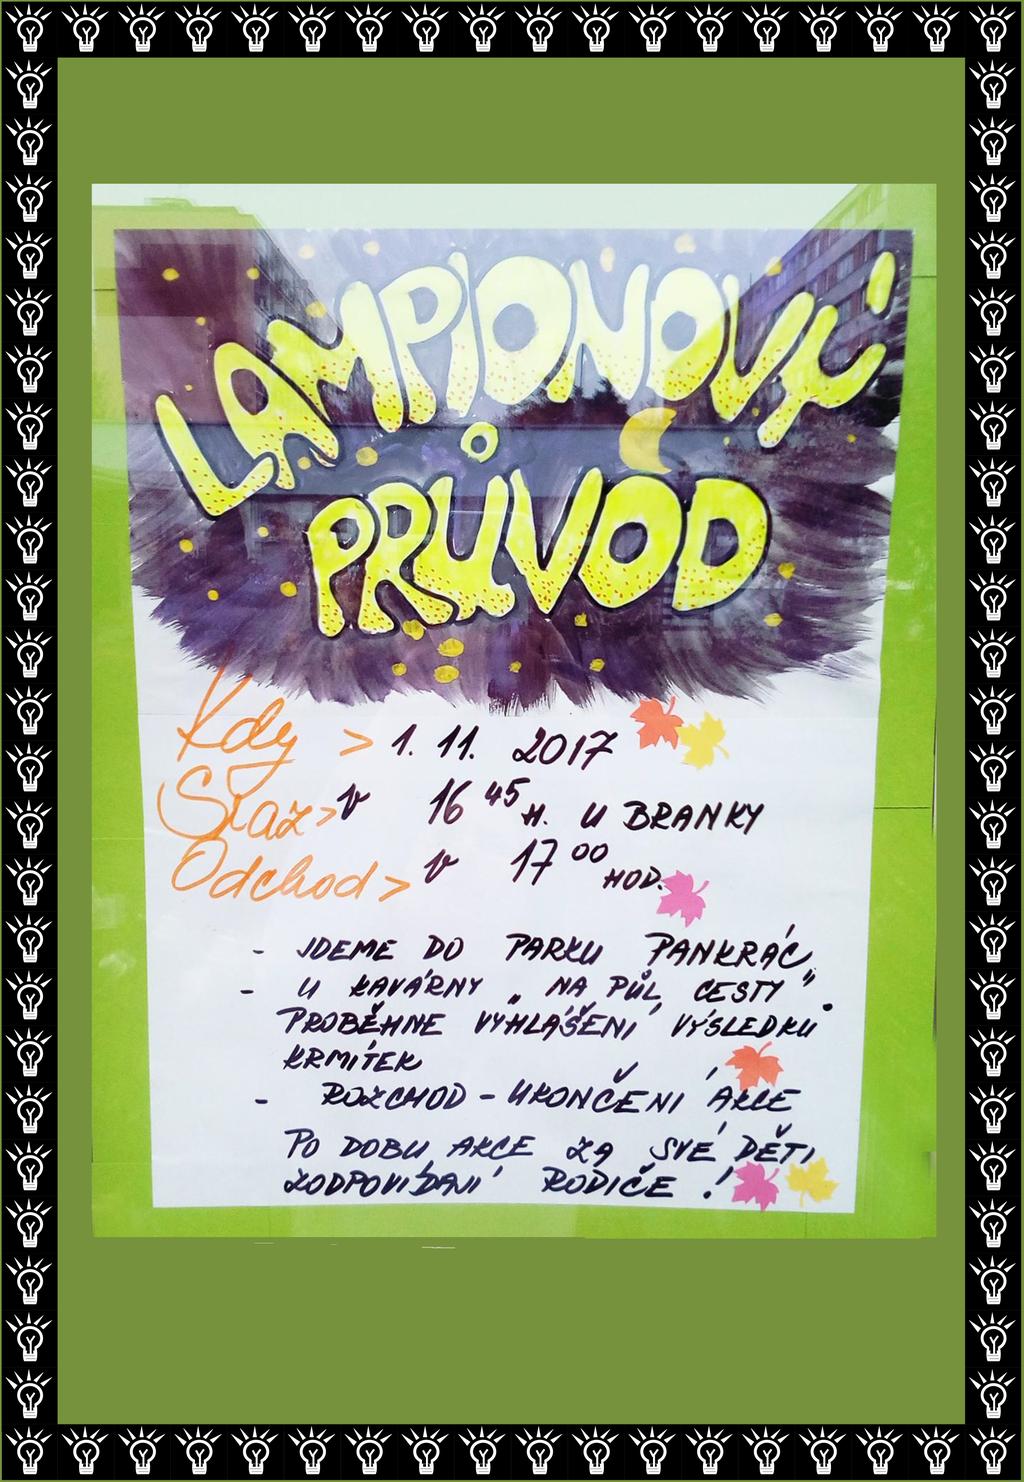 LAMPIONOVÝ
PRŮVOD
Kdy > 1. 11. 2017
Sraz > v 16 45 H. U BRANKY
Odchod > v 17 00 HOD.
- JDEME DO PARKU PANKRÁC
- U KAVÁRNY „NA PŮL CESTY“
PROBĚHNE VYHLÁŠENÍ VÝSLEDKŮ
KRMÍTEK
- ROZCHOD - UKONČENÍ AKCE
PO DOBU AKCE ZA SVÉ DĚTI
ZODPOVÍDAJÍ RODIČE !